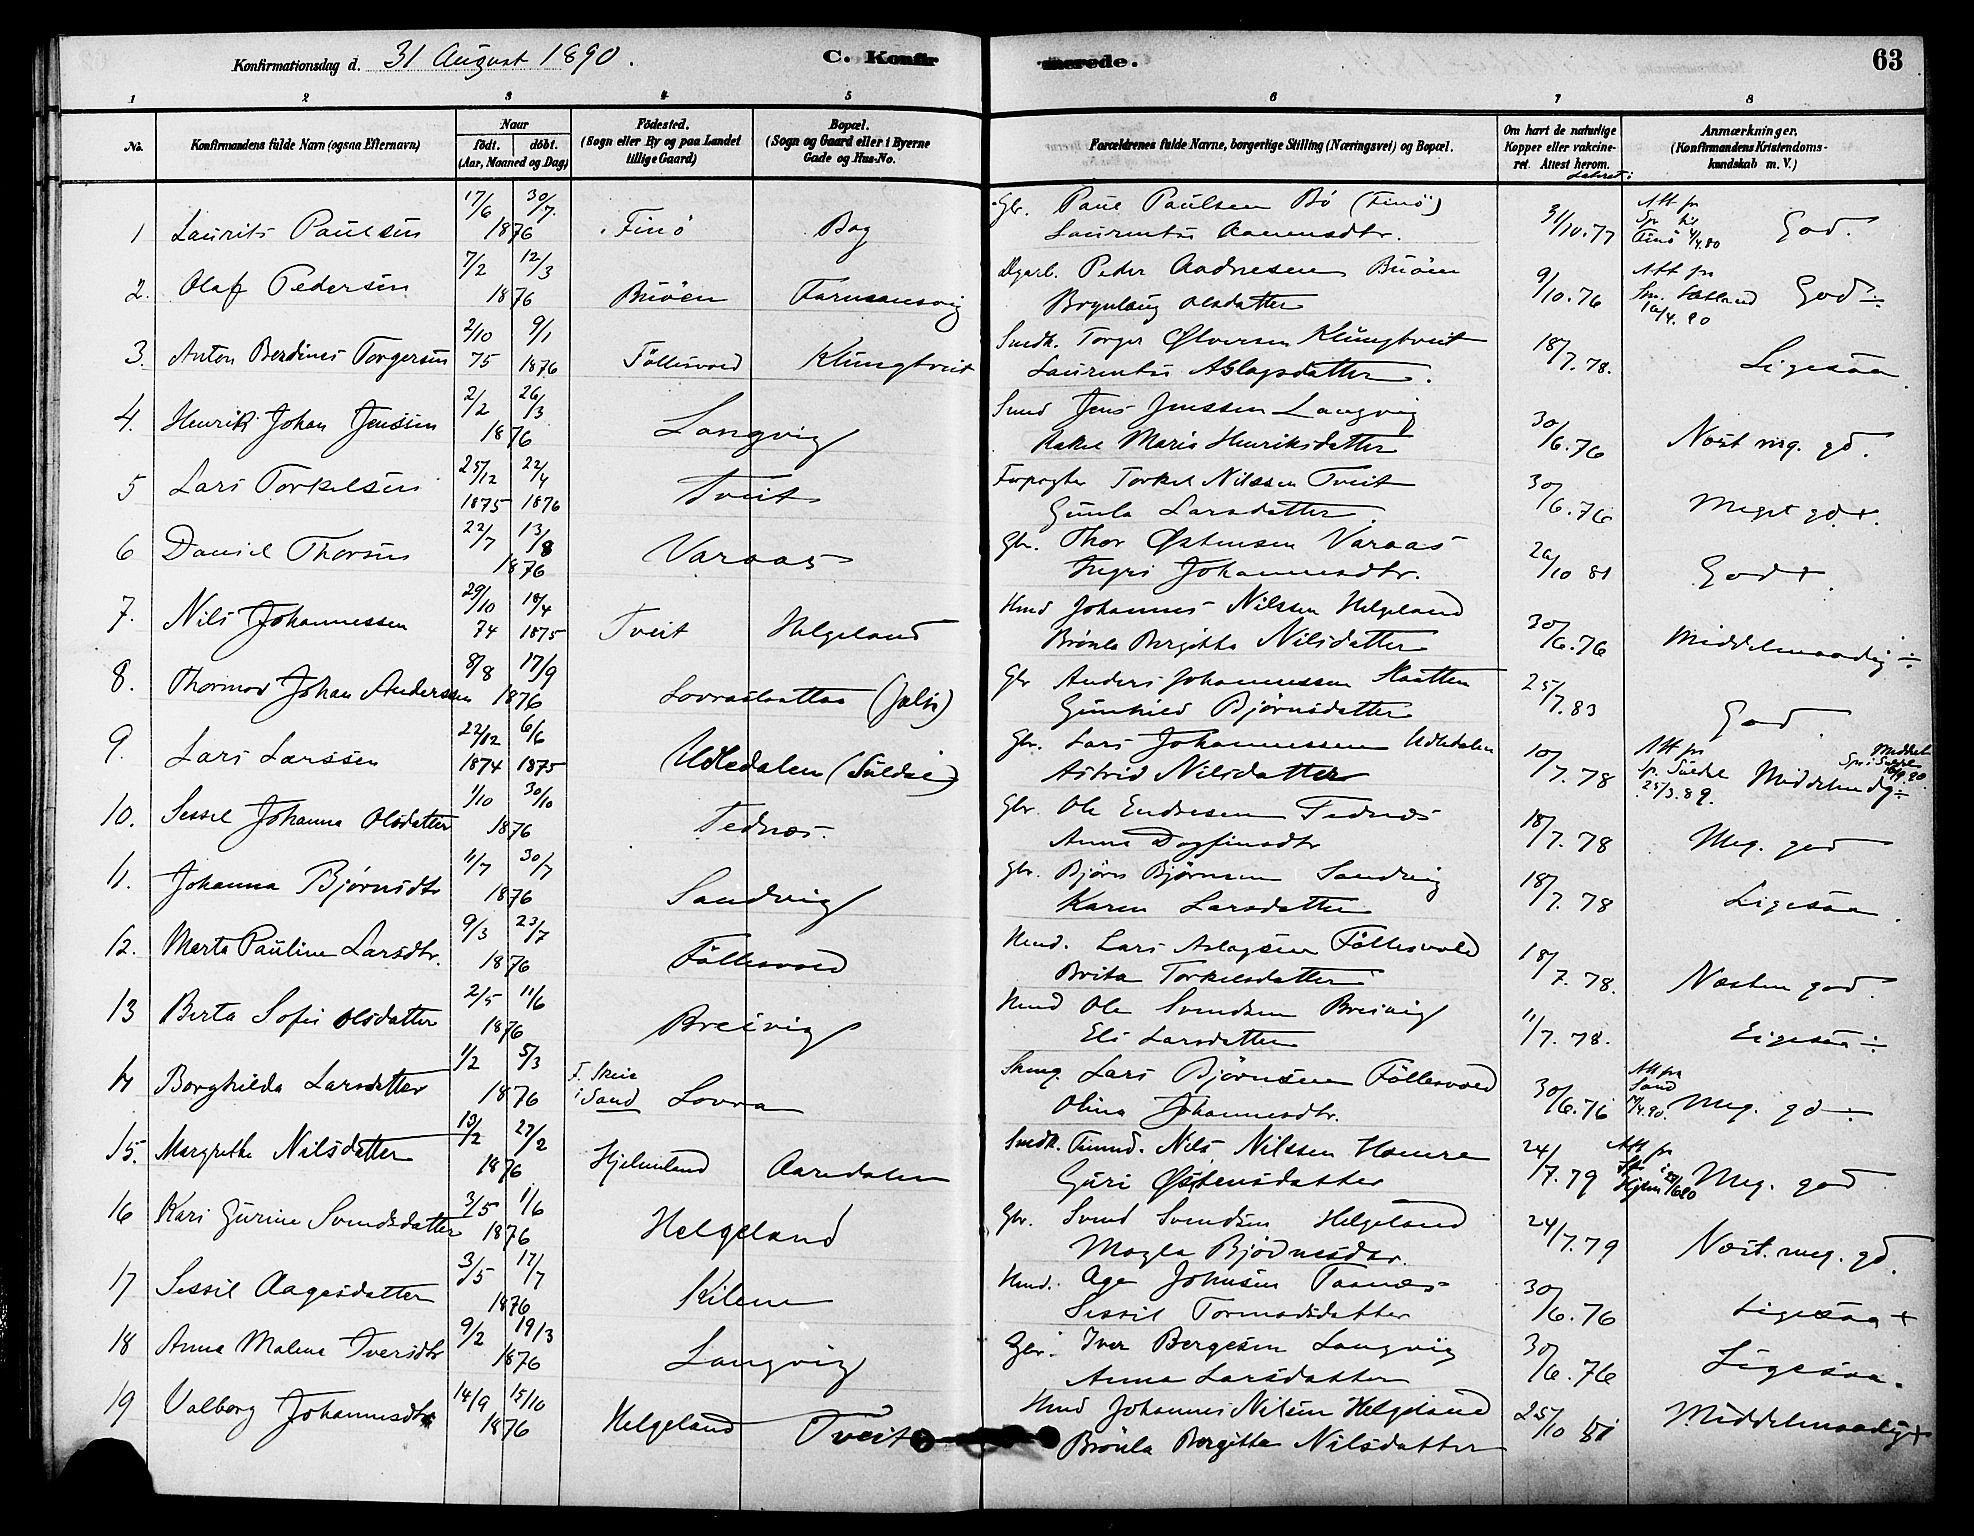 Konfirmationsdag d. 31 August 1890.
C. Konfirmerede.
63
1 2 3 4 5 6 7 8
No.
Konfirmandens fulde Navn (ogsaa Efternavn)
Naar
født. døbt.
(Aar, Maaned og Dag)
Födested.
(Sogn eller By og paa Landet
tillige Gaard)
Bopæl.
(Sogn og Gaard eller i Byerne
Gade og Hus-No.
Forældrenes fulde Navne, borgerlige Stilling (Næringsvei) og Bopæl.
Om havt de naturlige
Kopper eller vakcine-
ret. Attest herom.
Anmærkninger,
(Konfirmandens Kristendoms-
kundskab m. V.)
1 Laurits Paulsen 17/6 30/7 1876 Finö Bag Gbr. Paul Paulsen Bö (Finö) 31/10.77 God.
2. Olaf Pedersen 7/2 12/3 1876 Buöen Peder Aadnesen Buöen
Olsdatter 9/10.76 God ÷
3. Anton Berdines Torgersen 2/10 75 9/1 1876 Föllesvold Klungtveit Torger Ølversen Klungtveit
Laurentse Aslagsdatter. 18/7.78. Ligesaa.
4. Henrik Johan Jenssen 2/2 26/3 1876 Langvig Jens Jenssen Langvig
Rakel Maria Henriksdatter 30/6.76 Næst meg. gd.
5 Lars Torkelsen 25/12 1875 22/4 1876 Tveit Torkel Nilssen Tveit
Gunla Larsdatter 30/6.76 Meget gd +.
6 Daniel Thorsen 22/7 13/8 1876 Varaas Gbr. Thor Østensen Varaas
Ingri Johannesdtr. 20/10 81 God +
7. Nils Johannessen 29/10 74 18/4 1875 Tveit Helgeland Hmd Johannes Nilssen Helgeland
Brönla Bergitha Nilsdatter 30/6.76 Middelmaadig ÷
8. Thormod Johan Anderssen 8/8 17/9 1876 Lovraslaattaa (Jelse) Gbr Anders Johannessen Slaatten
Gunhild Björnsdatter 25/7.83 God.
9. Lars Larssen 22/12 1874 6/6 1875 Udledalen (Suldal) Gbr. Lars Johannessen Udledalen
Astrid Nilsdatter 10/7.78 Att fr Sp. Suldal 25/3.89. Middelmdg ÷
10. Sessel Johanna Olsdatter 1/10 30/10 1876 Tednes. Gbr. Ole Endresen Tednes
Anna Dagfinsdtr 18/7.78 Meg. god
11. Johanna Bjørnsdtr 11/7 30/7 1876 Sandvig Gbr. Bjørn Bjørnsen Sandvig
Karen Larsdatter 18/7.78 Ligesaa.
12. Marta Pauline Larsdtr. 9/3 23/7 1876 Föllesvold Hmd. Lars Aslagsen Föllesvold
Brita Torkelsdatter 18/7.78. Næsten god.
13 Berta Sofie Olsdatter 2/5 11/6 1876 Breivig Hmd Ole Svendsen Breivig
Eli Larsdatter 11/7.78. Ligesaa ÷
14 Borghilda Larsdatter 1/2 5/3 1876 F. Skeie i Sand Lovra Lars Björnsen Föllesvold
Olina Johannesdtr. 30/6.76 Att fra Sand 17/4.90. Meg. gd ÷
15. Margrethe Nilsdatter 13/2 27/2 1876 Hjelmeland Aardalen Nils Nilssen Hamre
Guri Østensdatter 24/7.79 Meg. god
16 Kari Gurine Svendsdatter 3/5 1/6 1876 Helgeland Gbr. Svend Svendsen Helgeland
Magla 24/7.79 Næst. meg. gd.
17 Sessil Aagesdatter 3/5 17/7 1876 Kilene Hmd. Age Johnsen
Sessil Tormodsdatter 30/6.76 Ligesaa +
18 Anna Malena Iversdtr 9/2 19/3 1876 Langvig Gbr. Iver Bergesen Langvig
Anna Larsdatter 30/6.76 Ligesaa.
19 Valborg Johannesdtr 14/9 15/10 1876 Helgeland Tveit Hmd Johannes Nilsen Helgeland
Brönla Bergitha Nilsdatter 25/10 81 Middelmaadig +